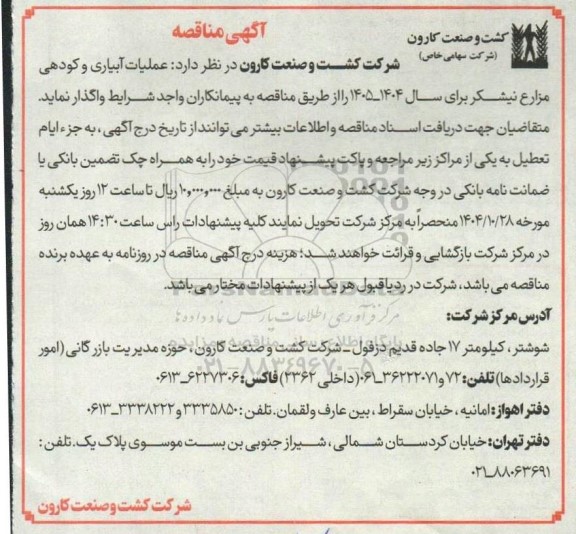 آگهی مناقصه
کشت و صنعت کارون
(شرکت سهامی خاص)
شرکت کشت و صنعت کارون در نظر دارد: عملیات آبیاری و کودهی
مزارع نیشکر برای سال ۱۴۰۴-۱۴۰۵ را از طریق مناقصه به پیمانکاران واجد شرایط واگذار نماید.
متقاضیان جهت دریافت اسناد مناقصه و اطلاعات بیشتر می توانند از تاریخ درج آگهی، به جز ایام
تعطیل به یکی از مراکز زیر مراجعه و پاکت پیشنهاد قیمت خود را به همراه چک تضمین بانکی یا
ضمانت نامه بانکی در وجه شرکت کشت و صنعت کارون به مبلغ ۱۰,۰۰۰,۰۰۰ ریال تا ساعت ۱۲ روز یکشنبه
مورخه ۱۴۰۴/۱۰/۲۸ منحصراً به مرکز شرکت تحویل نمایند کلیه پیشنهادات راس ساعت ۱۴:۳۰ همان روز
در مرکز شرکت بازگشایی و قرائت خواهند شد؛ هزینه درج آگهی مناقصه در روزنامه به عهده برنده
مناقصه می باشد، شرکت در رد یا قبول هر یک از پیشنهادات مختار می باشد.
آدرس مرکز شرکت:
شوشتر، کیلومتر ۱۷ جاده قدیم دزفول - شرکت کشت و صنعت کارون، حوزه مدیریت بازرگانی (امور
قراردادها) تلفن: ۷۲ و ۳۶۲۲۲۰۷۱-۰۶۱ (داخلی ۲۳۶۲) فاکس: ۶۲۲۷۳۰۶-۰۶۱۳
دفتر اهواز: امانیه، خیابان سقراط، بین عارف و لقمان. تلفن: ۳۳۳۵۸۵۰ و ۳۳۳۸۲۲۲-۰۶۱۳
دفتر تهران: خیابان کردستان شمالی، شیراز جنوبی بن بست موسوی پلاک یک. تلفن:
۰۲۱-۸۸۰۶۳۶۹۱
شرکت کشت و صنعت کارون
مرکز فرآوری اطلاعات پارس نماد داده ها
۰۲۱-۸۸۳۴۹۶۷۰-۵